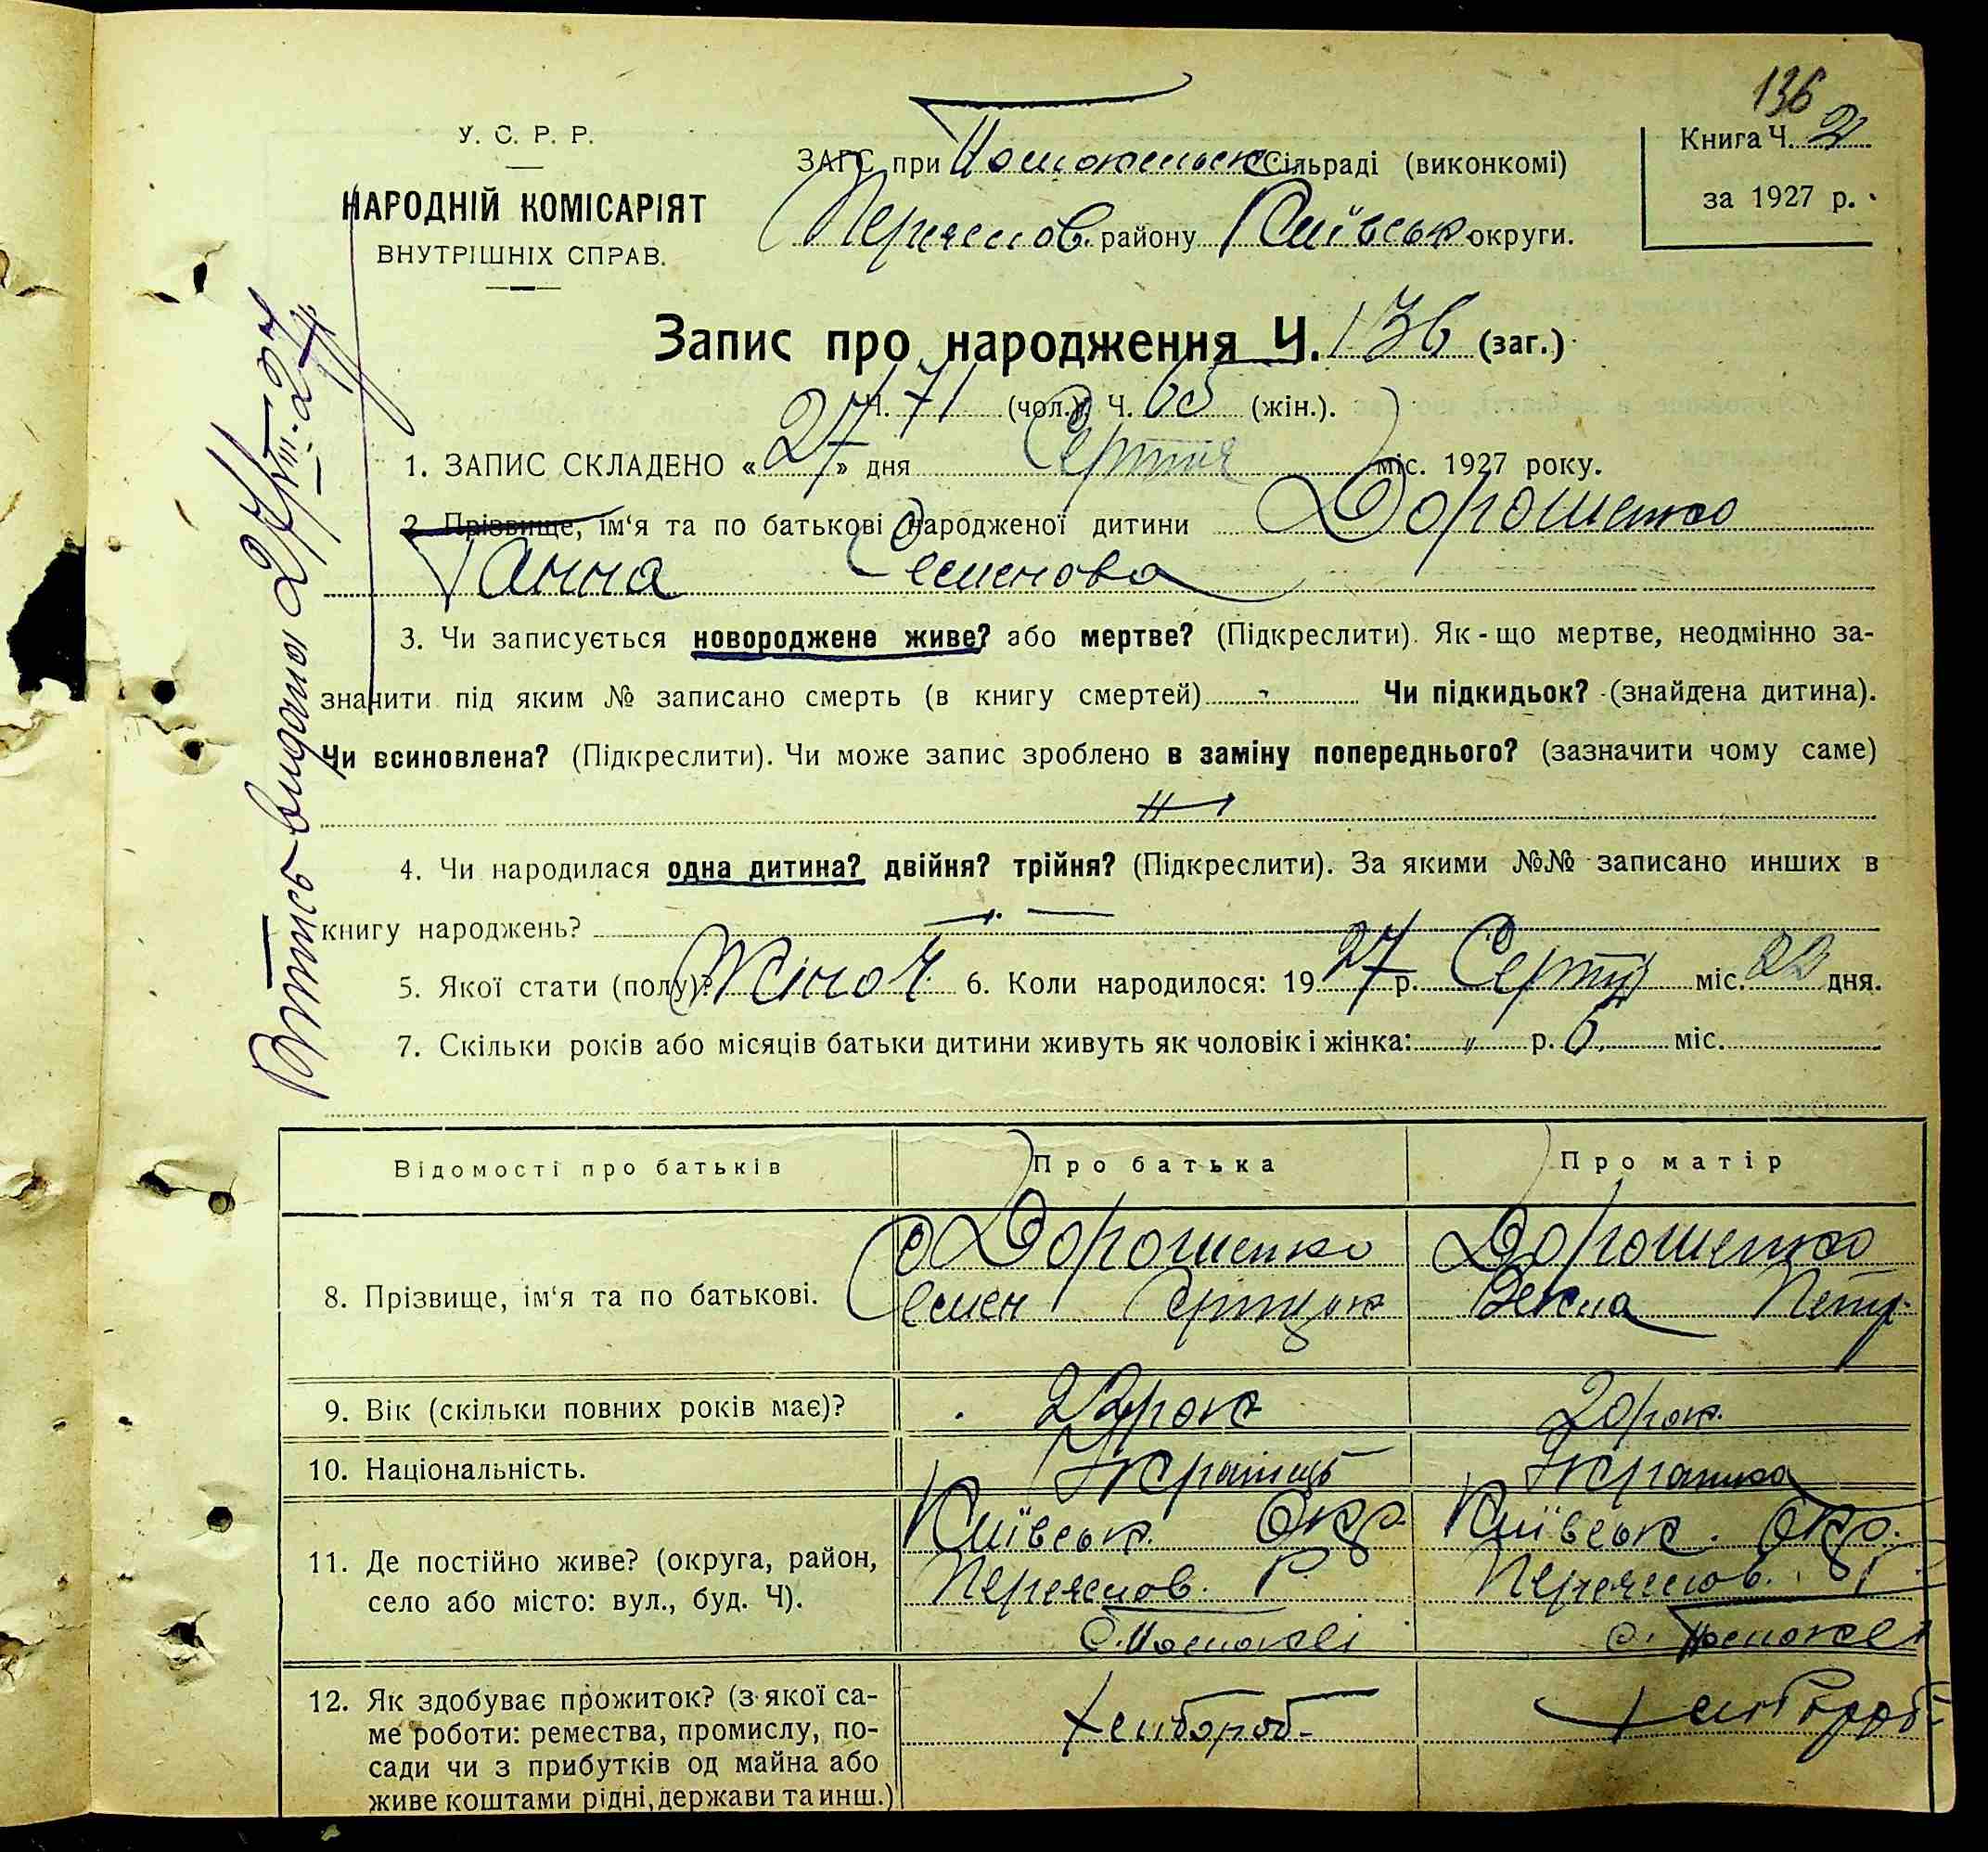 136
У. С. Р. Р.
НАРОДНІЙ КОМІСАРІЯТ
ВНУТРІШНІХ СПРАВ.
ЗАГС при Помоклськ Сільраді (виконкомі)
Переяслов. району Київськ округи.
Книга Ч. 2
за 1927 р.
Запис про народження Ч. 136 (заг.)
Ч. 71 (чол.) Ч. 65 (жін.).
1. ЗАПИС СКЛАДЕНО «27» дня Серпня міс. 1927 року.
2. Прізвище, ім‘я та по батькові народженої дитини Дорошенко
Ганна Семенова
3. Чи записується новороджене живе? або мертве? (Підкреслити). Як-що мертве, неодмінно за-
значити під яким № записано смерть (в книгу смертей) Чи підкидьок? (знайдена дитина).
Чи всиновлена? (Підкреслити). Чи може запис зроблено в заміну попереднього? (зазначити чому саме)
4. Чи народилася одна дитина? двійня? трійня? (Підкреслити). За якими №№ записано инших в
книгу народжень?
5. Якої стати (полу)? Жіноч. 6. Коли народилося: 1927 р. Серпня міс. 22 дня.
7. Скільки років або місяців батьки дитини живуть як чоловік і жінка: " р. 6 міс.
Відомості про батьків Про батька Про матір
8. Прізвище, ім‘я та по батькові. Дорошенко Дорошенко
Семен Векла Петр.
9. Вік (скільки повних років має)? 22 рок 20 рок.
10. Національність. Українць Українка
11. Де постійно живе? (округа, район,
село або місто: вул., буд. Ч).
Київськ. Окр. Київськ. Окр.
Переяслов. Р. Переяслов. Р.
с. Помоклі с. Помоклі
12. Як здобуває прожиток? (з якої са-
ме роботи: ремества, промислу, по-
сади чи з прибутків од майна або
живе коштами рідні, держави та инш.)
Хлібороб Хлібороб
Витяг видано 27/VIII-27 р